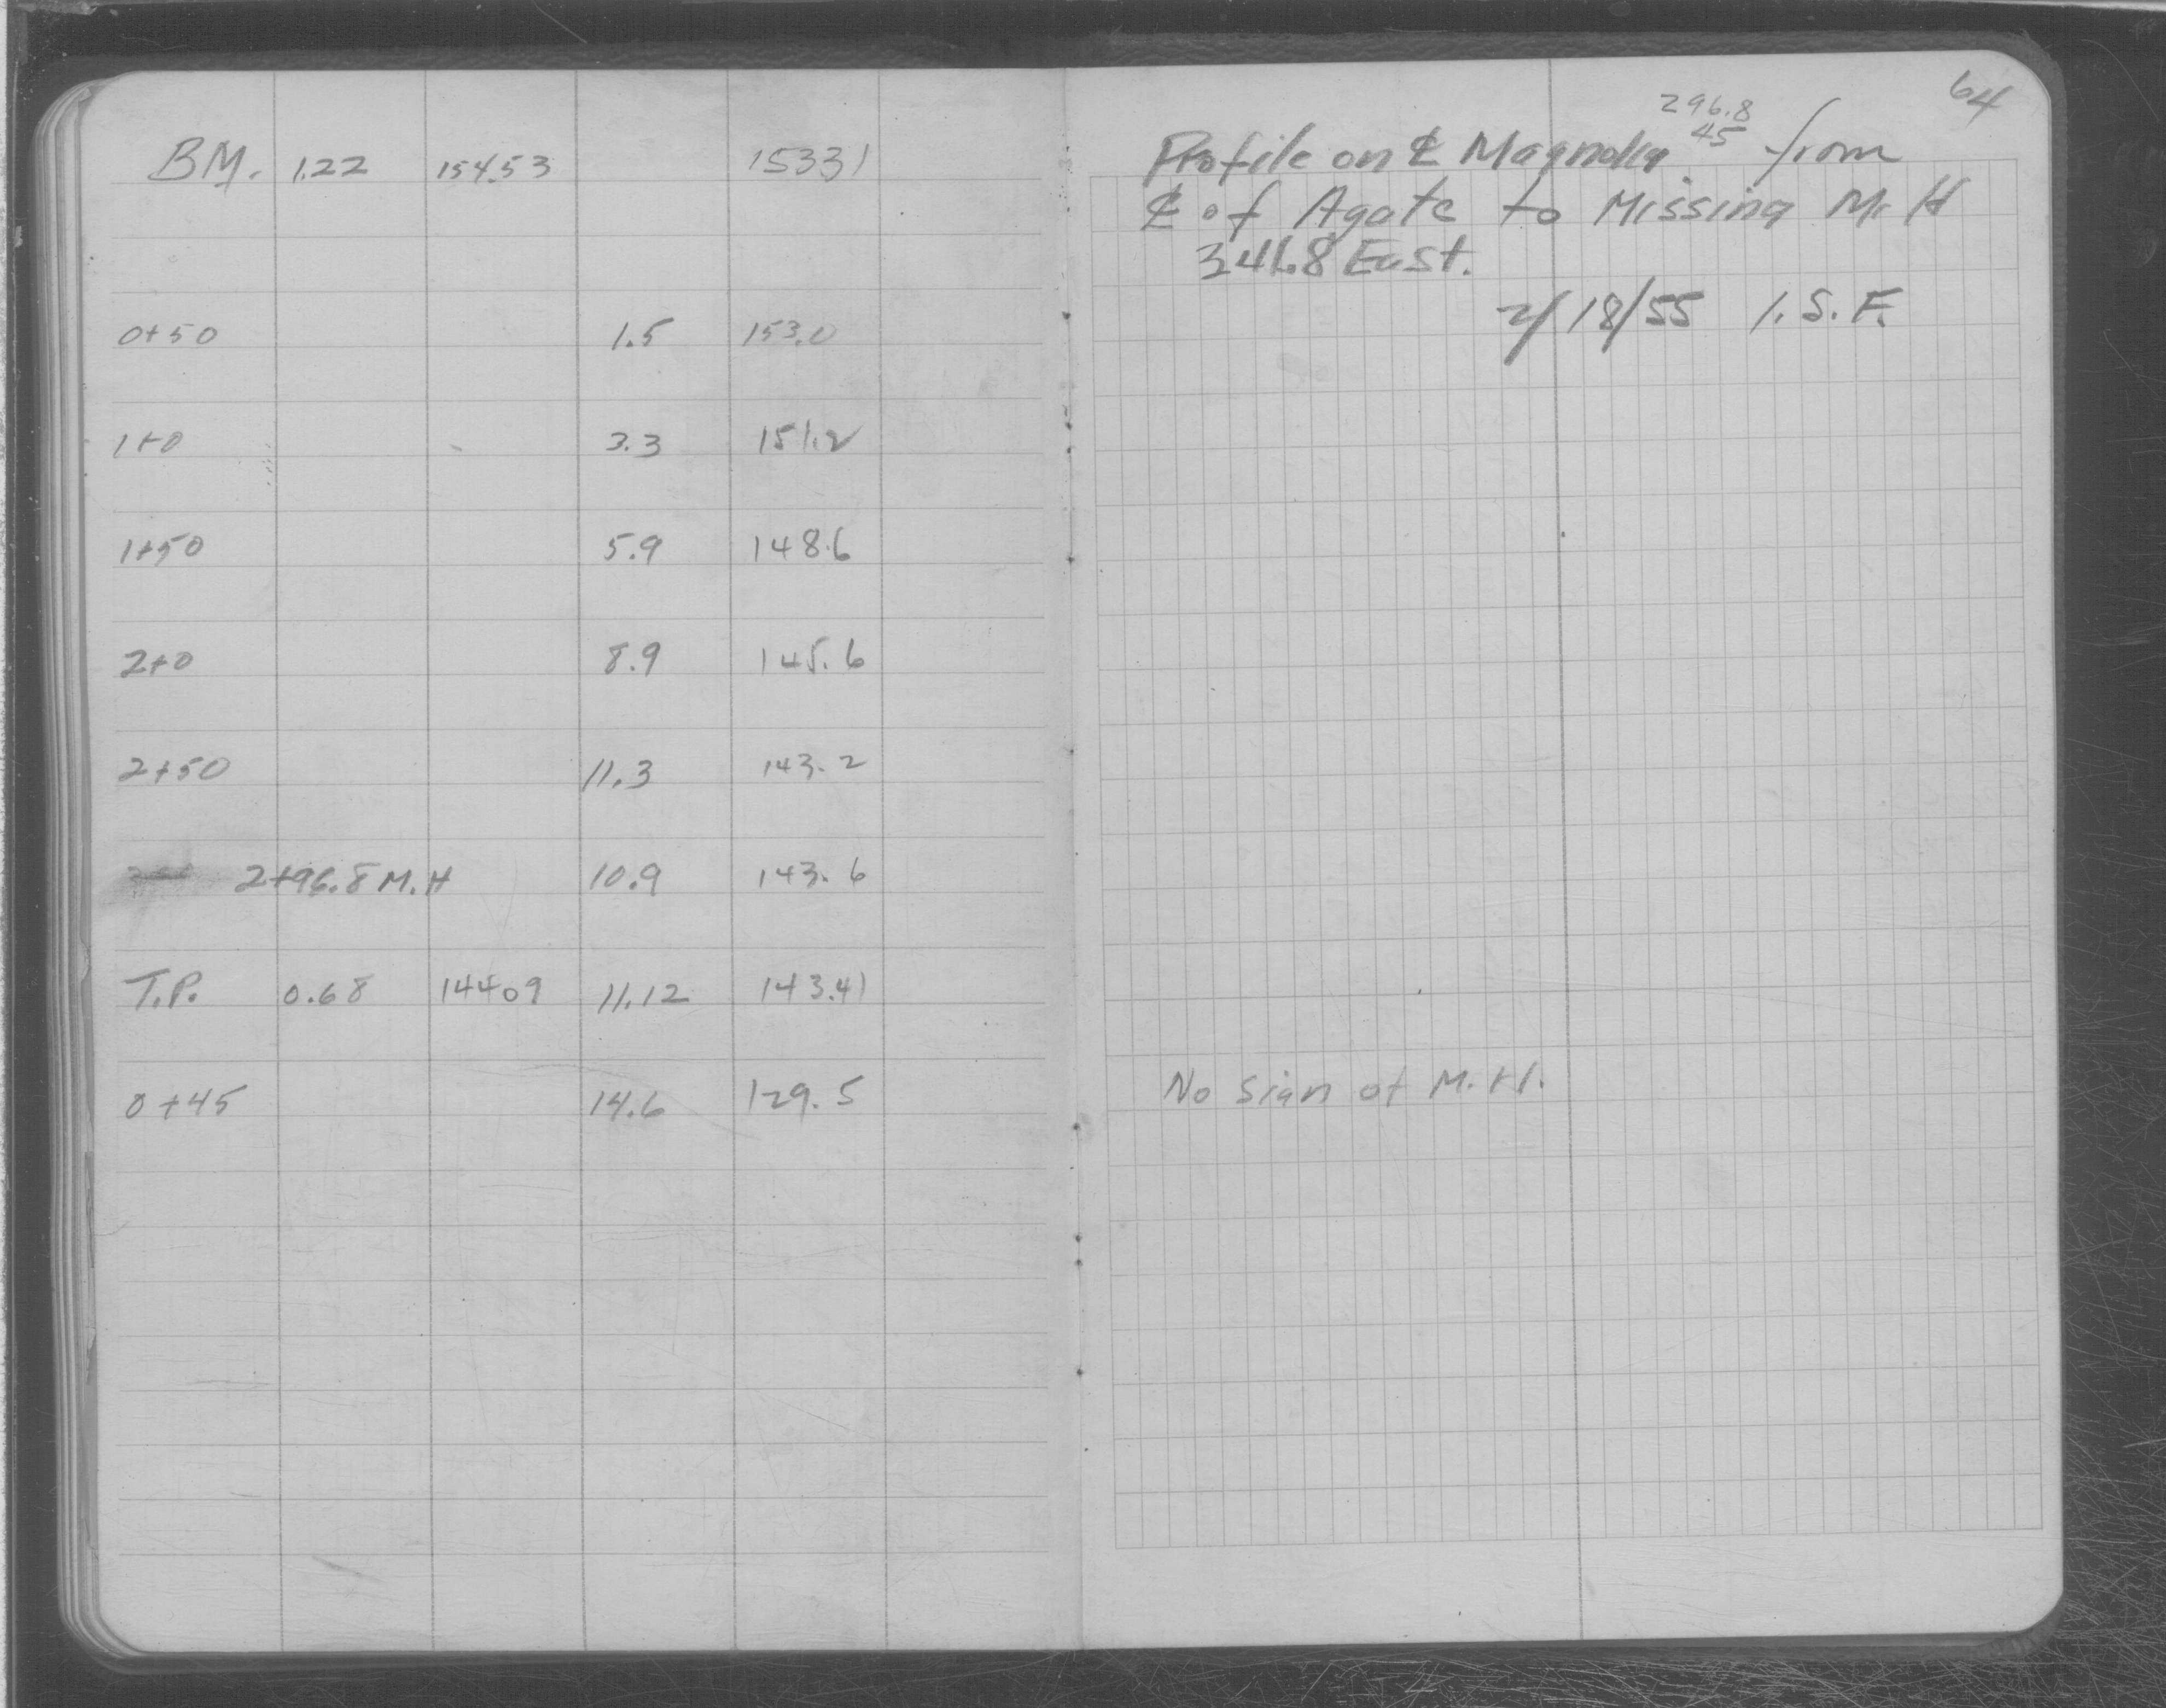 BM. 1.22 154.53 153.31
0+50 1.5 153.0
1+0 3.3 151.2
1+50 5.9 148.6
2+0 8.9 145.6
2+50 11.3 143.2
2+96.8 M.H 10.9 143.6
T.P. 0.68 144.09 11.12 143.41
0+45 14.6 129.5
64
296.8
45
Profile on ℄ Magnolia from
℄ of Agate to Missing M.H
341.8 East.
2/18/55 I.S.F.
No Sign of M.H.